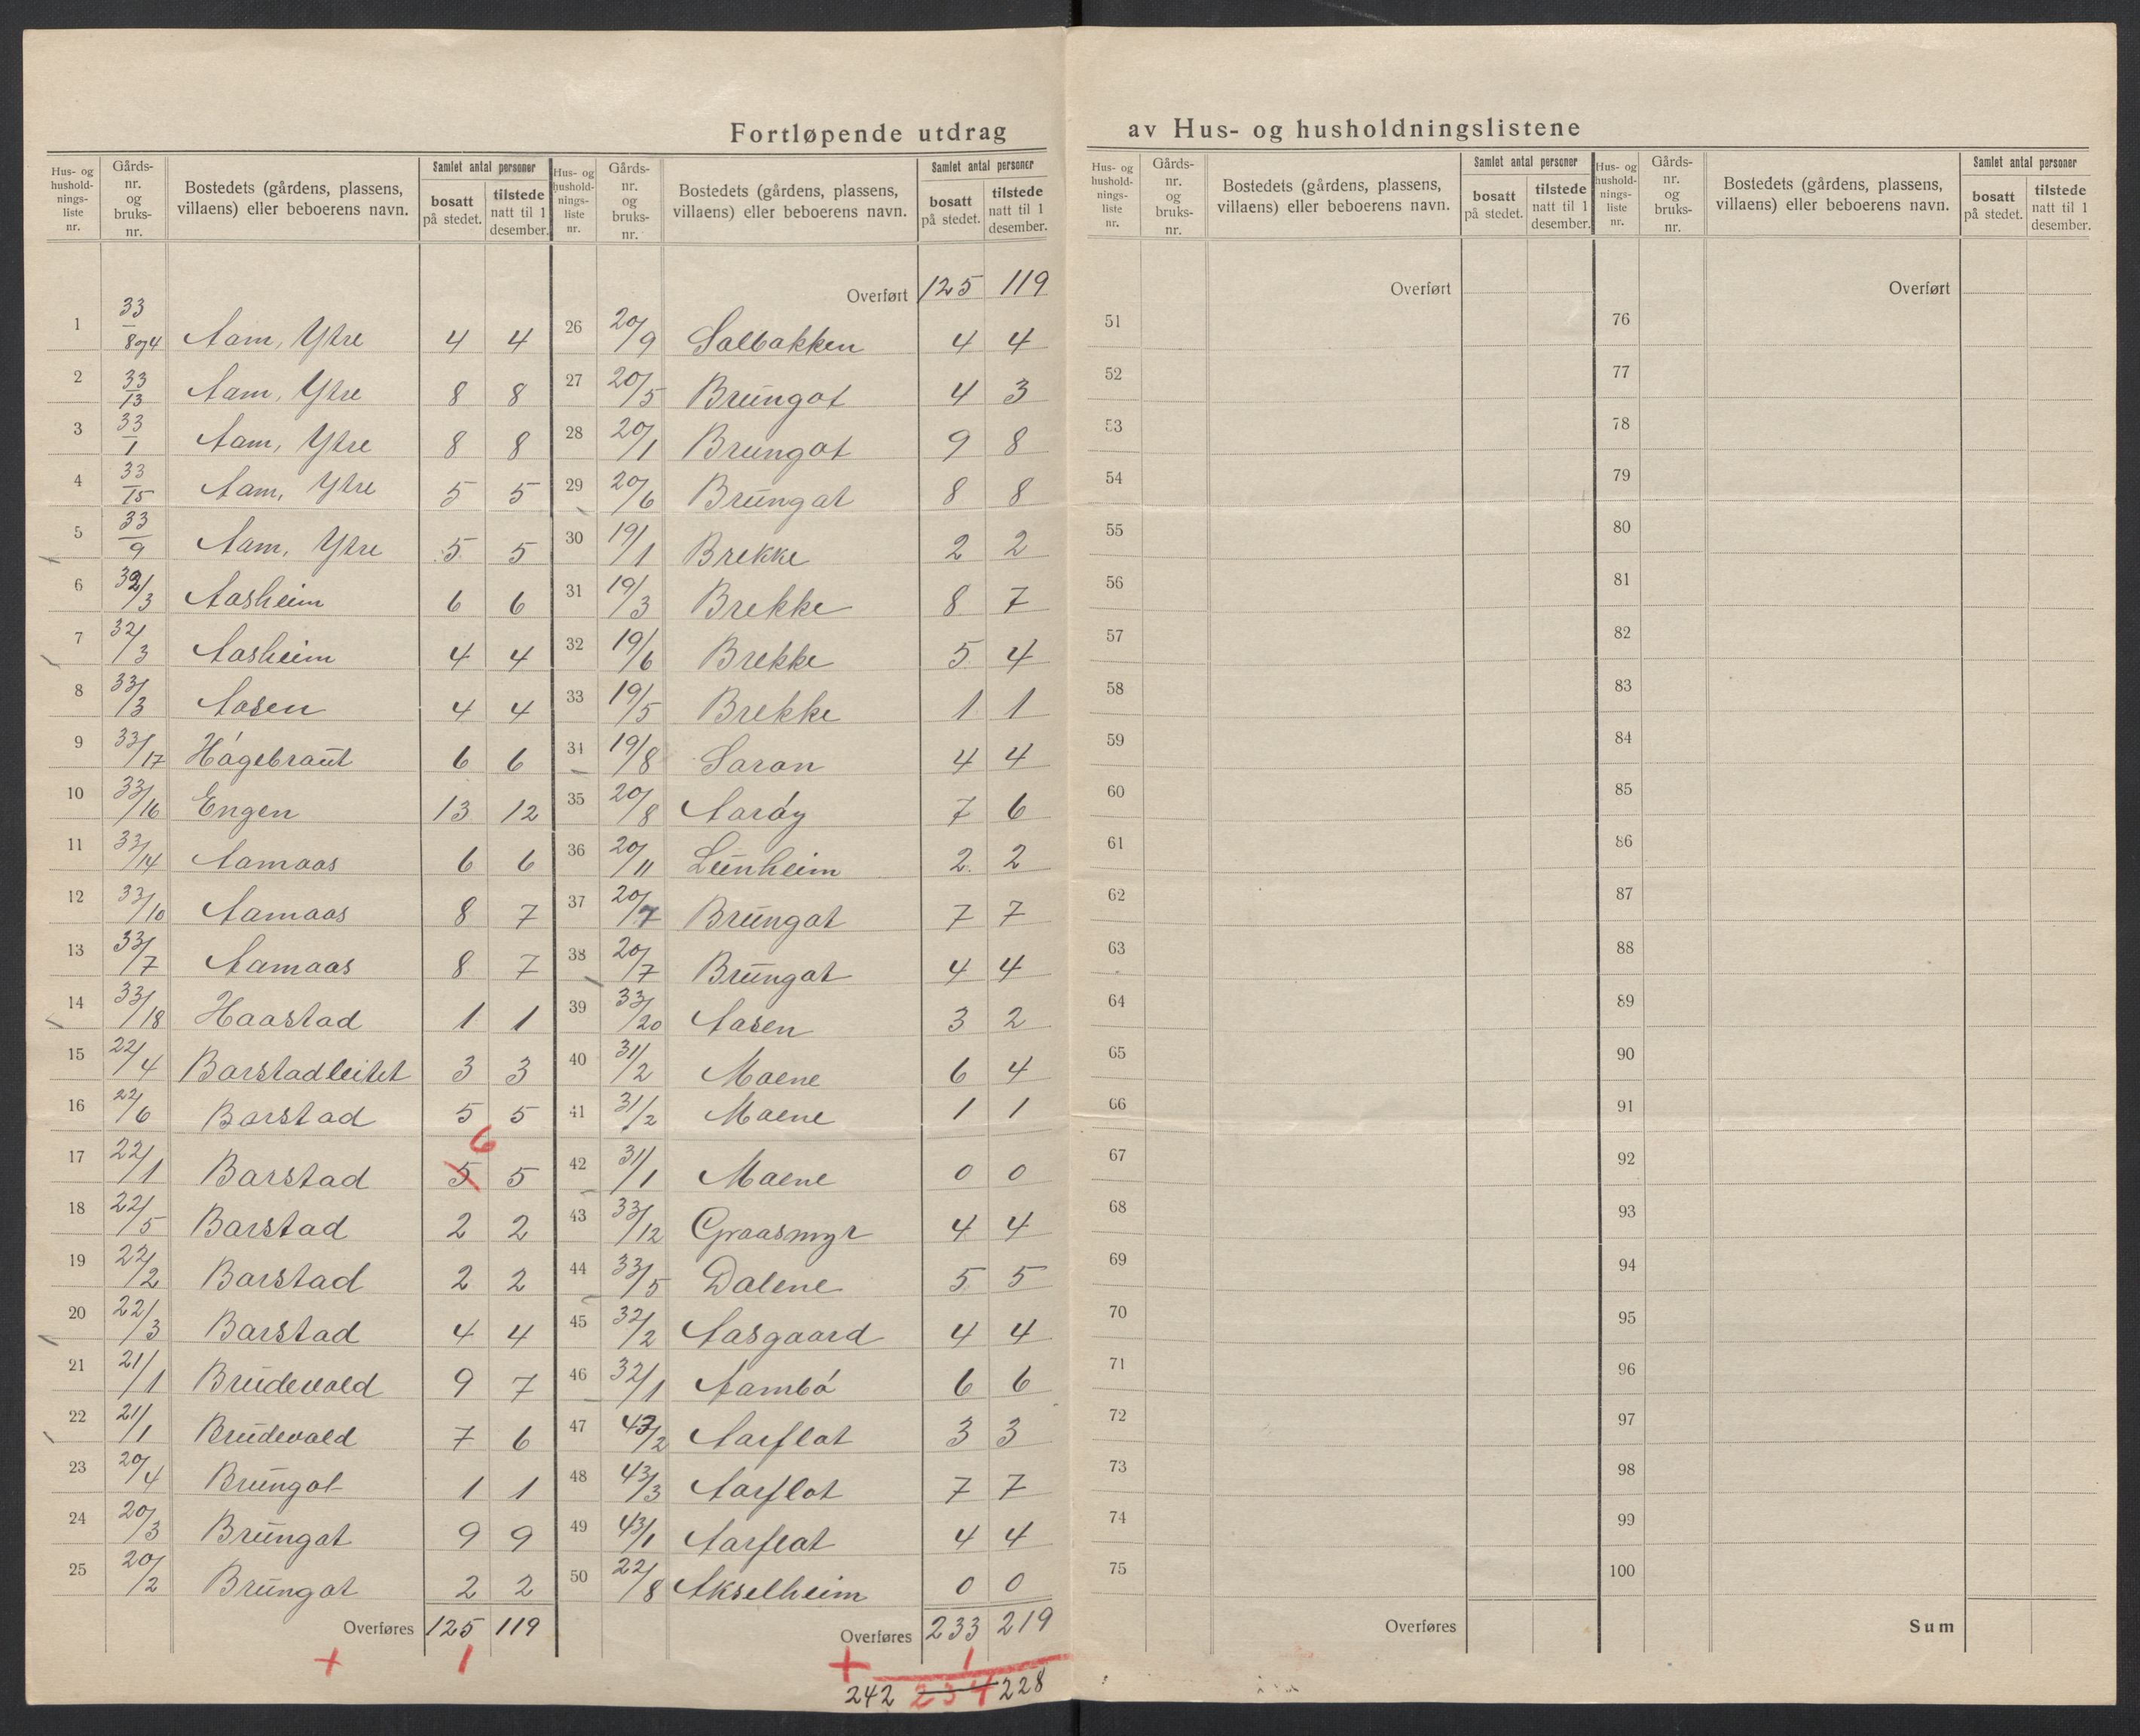 Fortløpende utdrag av Hus- og husholdningslistene
Hus- og hushold- nings- liste nr. | Gårds- nr. og bruks- nr. | Bostedets (gårdens, plassens, villaens) eller beboerens navn. | Samlet antal personer | bosatt på stedet. | tilstede natt til 1 desember.
1 33/8og4 Aam, Ytre 4 4
2 33/13 Aam, Ytre 8 8
3 33/1 Aam, Ytre 8 8
4 33/15 Aam, Ytre 5 5
5 33/9 Aam, Ytre 5 5
6 32/3 Aasheim 6 6
7 32/3 Aasheim 4 4
8 33/3 Aasen 4 4
9 33/17 Hágebraut 6 6
10 33/16 Engen 13 12
11 33/14 Aamaas 6 6
12 33/10 Aamaas 8 7
13 33/7 Aamaas 8 7
14 33/18 Haastad 1 1
15 22/4 Barstadleitet 3 3
16 22/6 Barstad 5 5
6
17 22/1 Barstad 5 5
18 22/5 Barstad 2 2
19 22/2 Barstad 2 2
20 22/3 Barstad 4 4
21 21/1 Brudevold 9 7
22 21/1 Brudevold 7 6
23 20/4 Brungot 1 1
24 20/3 Brungot 9 9
25 20/2 Brungot 2 2
Overføres 125 119
+ 1
Hus- og hushold- nings- liste nr. | Gårds- nr. og bruks- nr. | Bostedets (gårdens, plassens, villaens) eller beboerens navn. | Samlet antal personer | bosatt på stedet. | tilstede natt til 1 desember.
Overført 125 119
26 20/9 Solbakken 4 4
27 20/5 Brungot 4 3
28 20/1 Brungot 9 8
29 20/6 Brungot 8 8
30 19/1 Brekke 2 2
31 19/3 Brekke 8 7
32 19/6 Brekke 5 4
33 19/5 Brekke 1 1
34 19/8 Saron 4 4
35 20/8 Aaróy 7 6
36 20/11 Leinheim 2 2
37 20/7 Brungot 7 7
38 20/7 Brungot 4 4
39 33/20 Aasen 3 2
40 31/2 Moene 6 4
41 31/2 Moene 1 1
42 31/1 Moene 0 0
43 33/12 Graasmyr 4 4
44 33/5 Dalene 5 5
45 32/2 Aasgaard 4 4
46 32/1 Aambó 6 6
47 43/2 Aarflot 3 3
48 43/3 Aarflot 7 7
49 43/1 Aarflot 4 4
50 22/8 Akselheim 0 0
Overføres 233 219
+ 1
242 234 228
Hus- og hushold- nings- liste nr. | Gårds- nr. og bruks- nr. | Bostedets (gårdens, plassens, villaens) eller beboerens navn. | Samlet antal personer | bosatt på stedet. | tilstede natt til 1 desember.
Overført
51
52
53
54
55
56
57
58
59
60
61
62
63
64
65
66
67
68
69
70
71
72
73
74
75
Overføres
Hus- og hushold- nings- liste nr. | Gårds- nr. og bruks- nr. | Bostedets (gårdens, plassens, villaens) eller beboerens navn. | Samlet antal personer | bosatt på stedet. | tilstede natt til 1 desember.
Overført
76
77
78
79
80
81
82
83
84
85
86
87
88
89
90
91
92
93
94
95
96
97
98
99
100
Sum